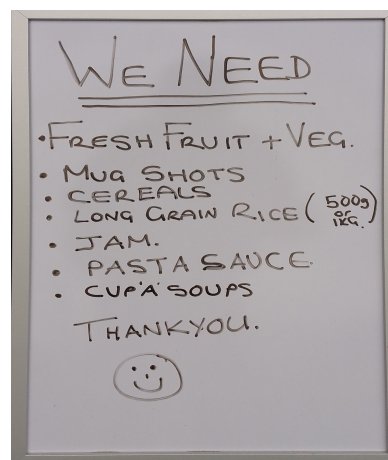 WE NEED
• FRESH FRUIT + VEG.
• MUG SHOTS
• CEREALS
• LONG GRAIN RICE (500g or 1KG.)
• JAM.
• PASTA SAUCE.
• CUP'A'SOUPS
THANKYOU.